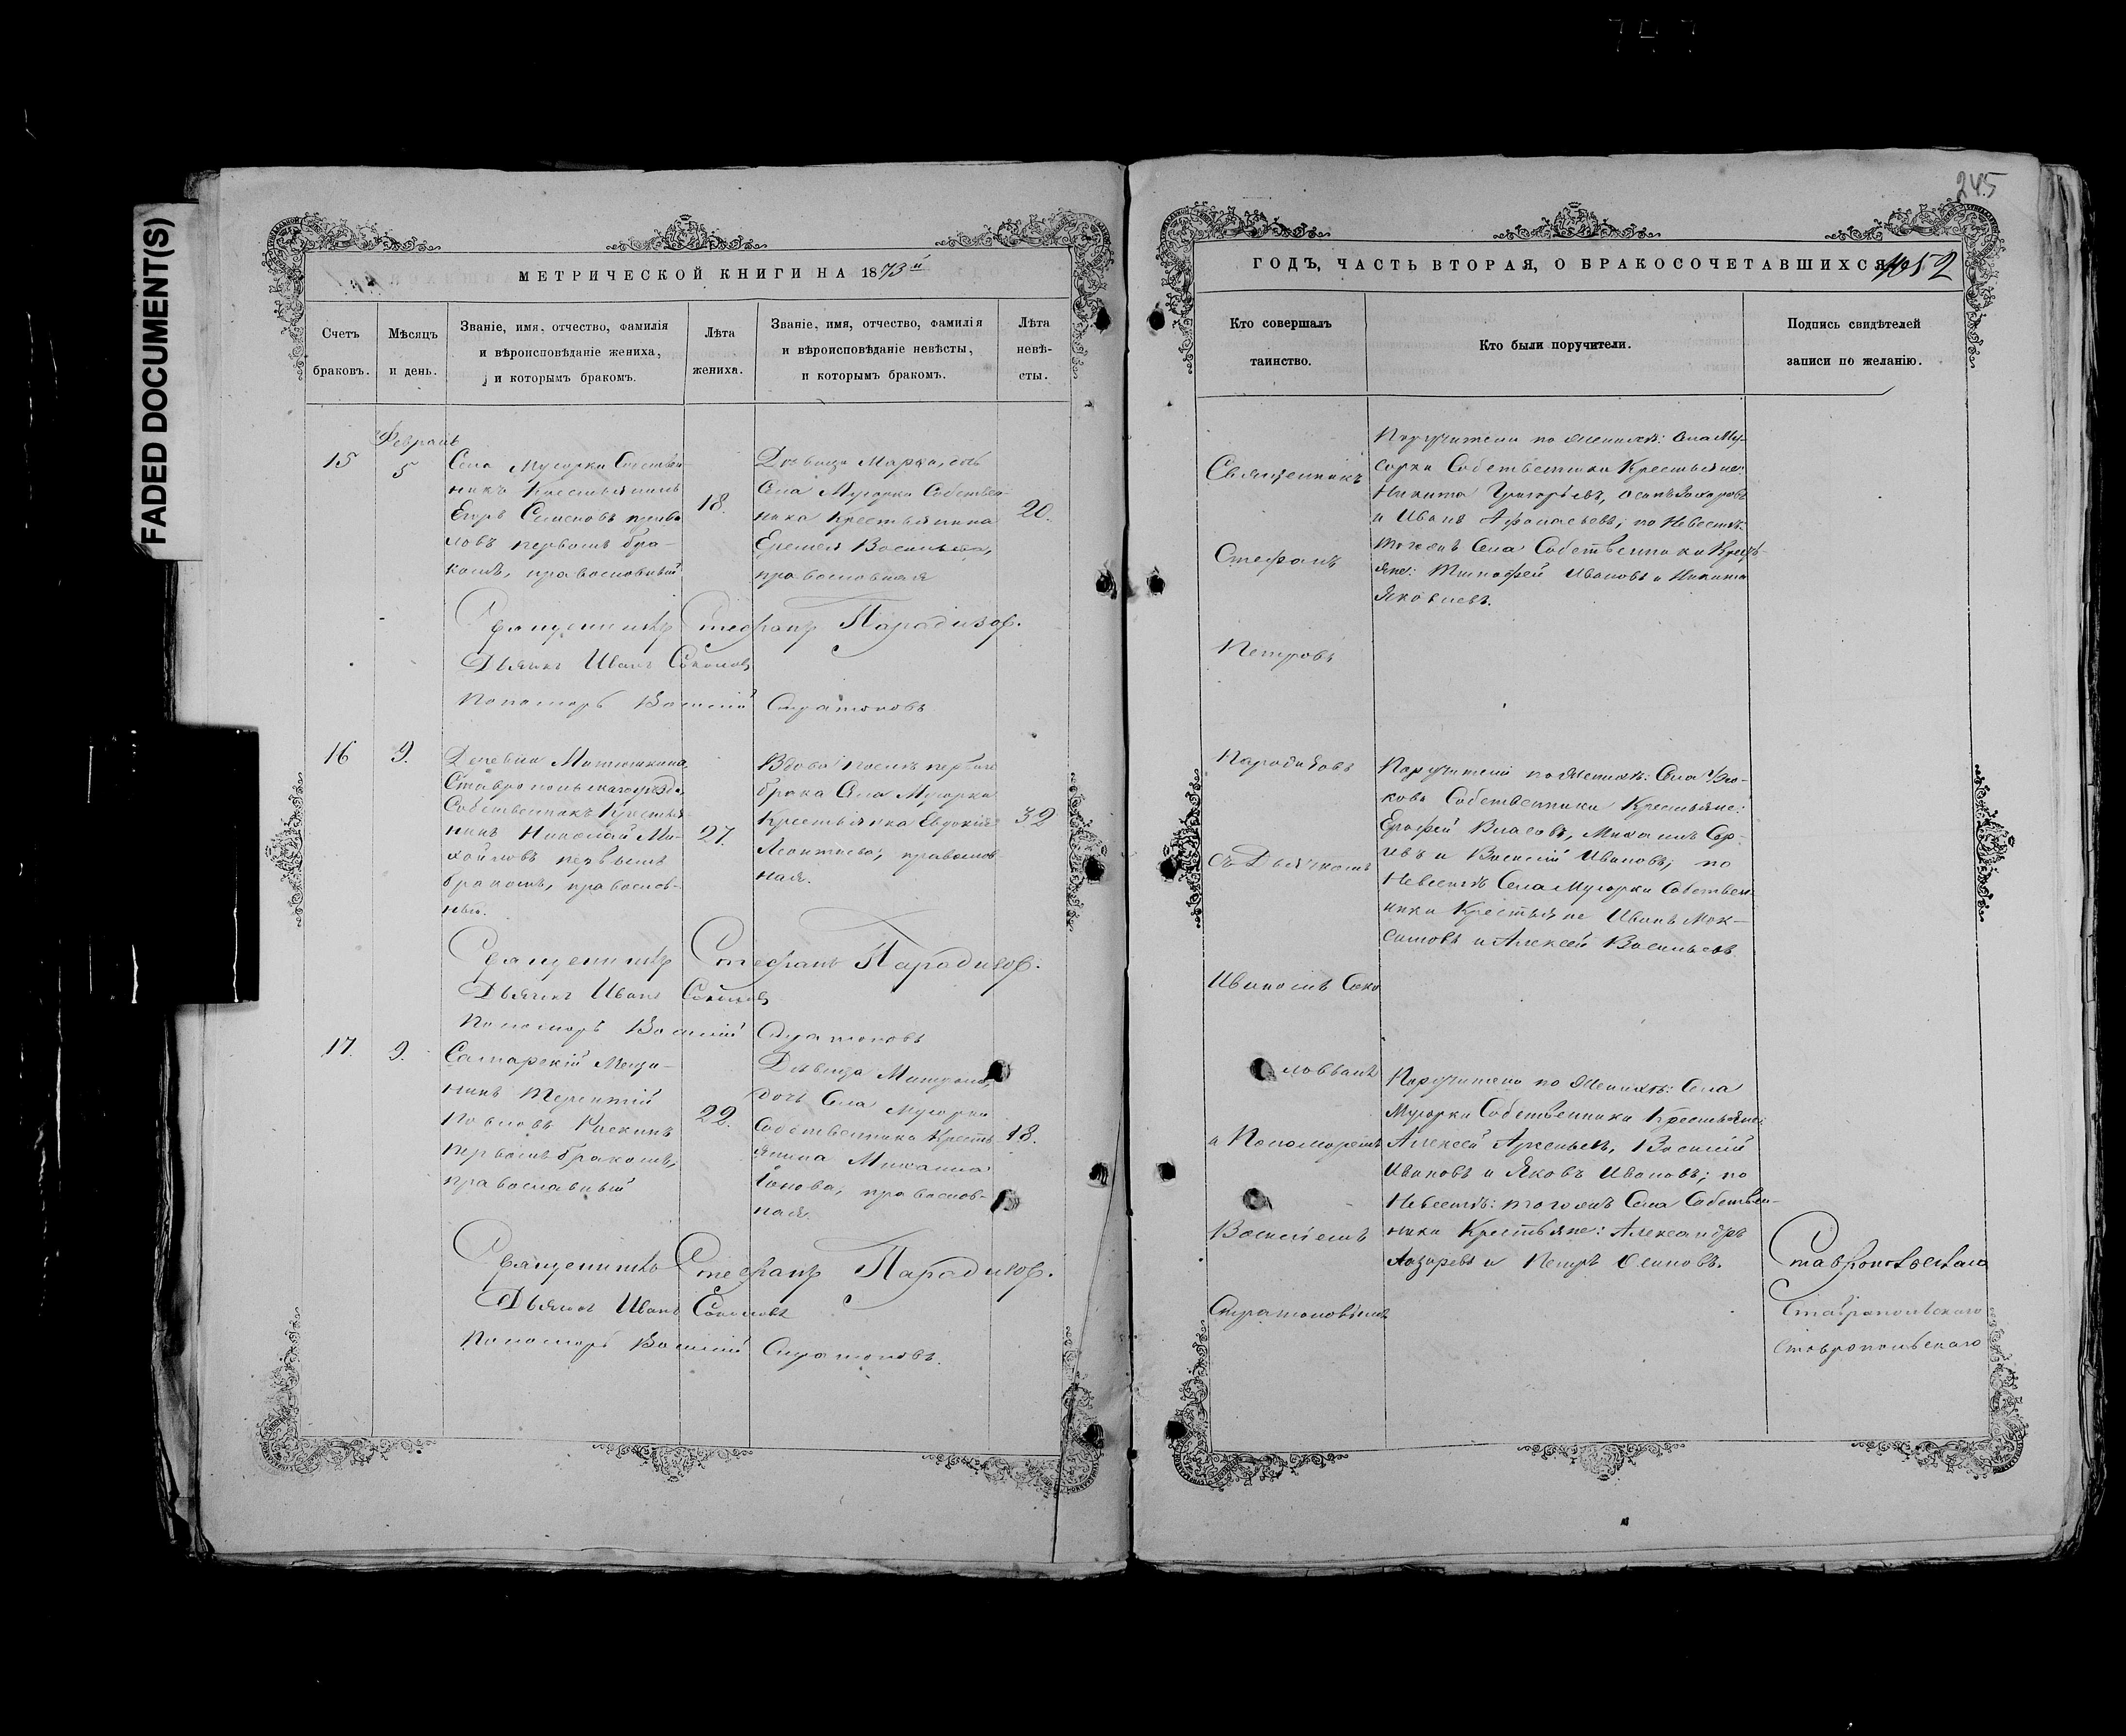 FADED DOCUMENT(S)
МЕТРИЧЕСКОЙ КНИГИ НА 1873й
Счетъ браковъ.
Мѣсяцъ и день.
Званіе, имя, отчество, фамилія
и вѣроисповѣданіе жениха,
и которымъ бракомъ.
Лѣта жениха.
Званіе, имя, отчество, фамилія
и вѣроисповѣданіе невѣсты,
и которымъ бракомъ.
Лѣта невѣ-
сты.
Февраль
15
5
Села Мусорки Собствен-
никъ Крестьянинъ
Егоръ Семеновъ
первымъ бра-
комъ, православный
18.
Дѣвица Марѳа, дочь
Села Мусорки Собствен-
ника Крестьянина
Еремея Васильева,
православная
20.
Священникъ Стефанъ Парадизов.
Дьячекъ Иванъ Соколовъ
Пономарь Василій Стратоновъ
16
9.
Деревни Матюшкина
Ставропольскаго уѣзда,
Собственникъ Крестья-
нинъ Николай Ми-
хайловъ первымъ
бракомъ, православ-
ный.
27.
Вдова послѣ перваго
брака Села Мусорки
Крестьянка Евдокія
Леонтьева, православ
ная.
32
Священникъ Стефанъ Парадизов.
Дьячекъ Иванъ Соколовъ
Пономарь Василій Стратоновъ
17.
9.
Самарскій Мѣща-
нинъ Терентій
Павловъ
первымъ бракомъ,
православный
22.
Дѣвица Матрона,
дочь Села Мусорки
Собственника Кресть
янина Михаила
православ-
ная.
18.
Священникъ Стефанъ Парадизов.
Дьячекъ Иванъ Соколовъ
Пономарь Василій Стратоновъ.
245
ГОДЪ, ЧАСТЬ ВТОРАЯ, О БРАКОСОЧЕТАВШИХСЯ.
Кто совершалъ
таинство.
Кто были поручители.
Подпись свидѣтелей
записи по желанію.
Священникъ
Стефанъ
Петровъ
Парадизовъ
съ Дьячкомъ
Иваномъ Соко
ловымъ
и Пономаремъ
Василіемъ
Стратоновымъ
Поручители по женихѣ: Села Му-
сорки Собственники Крестьяне:
Никита Григорьевъ, Осипъ Захаровъ
и Иванъ Афанасьевъ; по Невѣстѣ:
тогожъ Села Собственники Кресть-
яне: Тимофей Ивановъ и Никита
Яковлевъ.
Поручители по Женихѣ: Села
Собственники Крестьяне:
Ерофей Власовъ, Михаилъ Сер-
гѣевъ и Василій Ивановъ; по
Невѣстѣ Села Мусорки Собствен
ники Крестьяне Иванъ Мак-
симовъ и Алексѣй Васильевъ
Поручители по Женихѣ: Села
Мусорки Собственники Крестьяне:
Алексѣй Арсеньевъ, Василій
Ивановъ и Яковъ Ивановъ; по
Невѣстѣ: тогожъ Села Собствен-
ники Крестьяне: Александръ
Лазаревъ и Петръ Семновъ.
Ставропольскаго
Ставропольскаго
Ставропольскаго